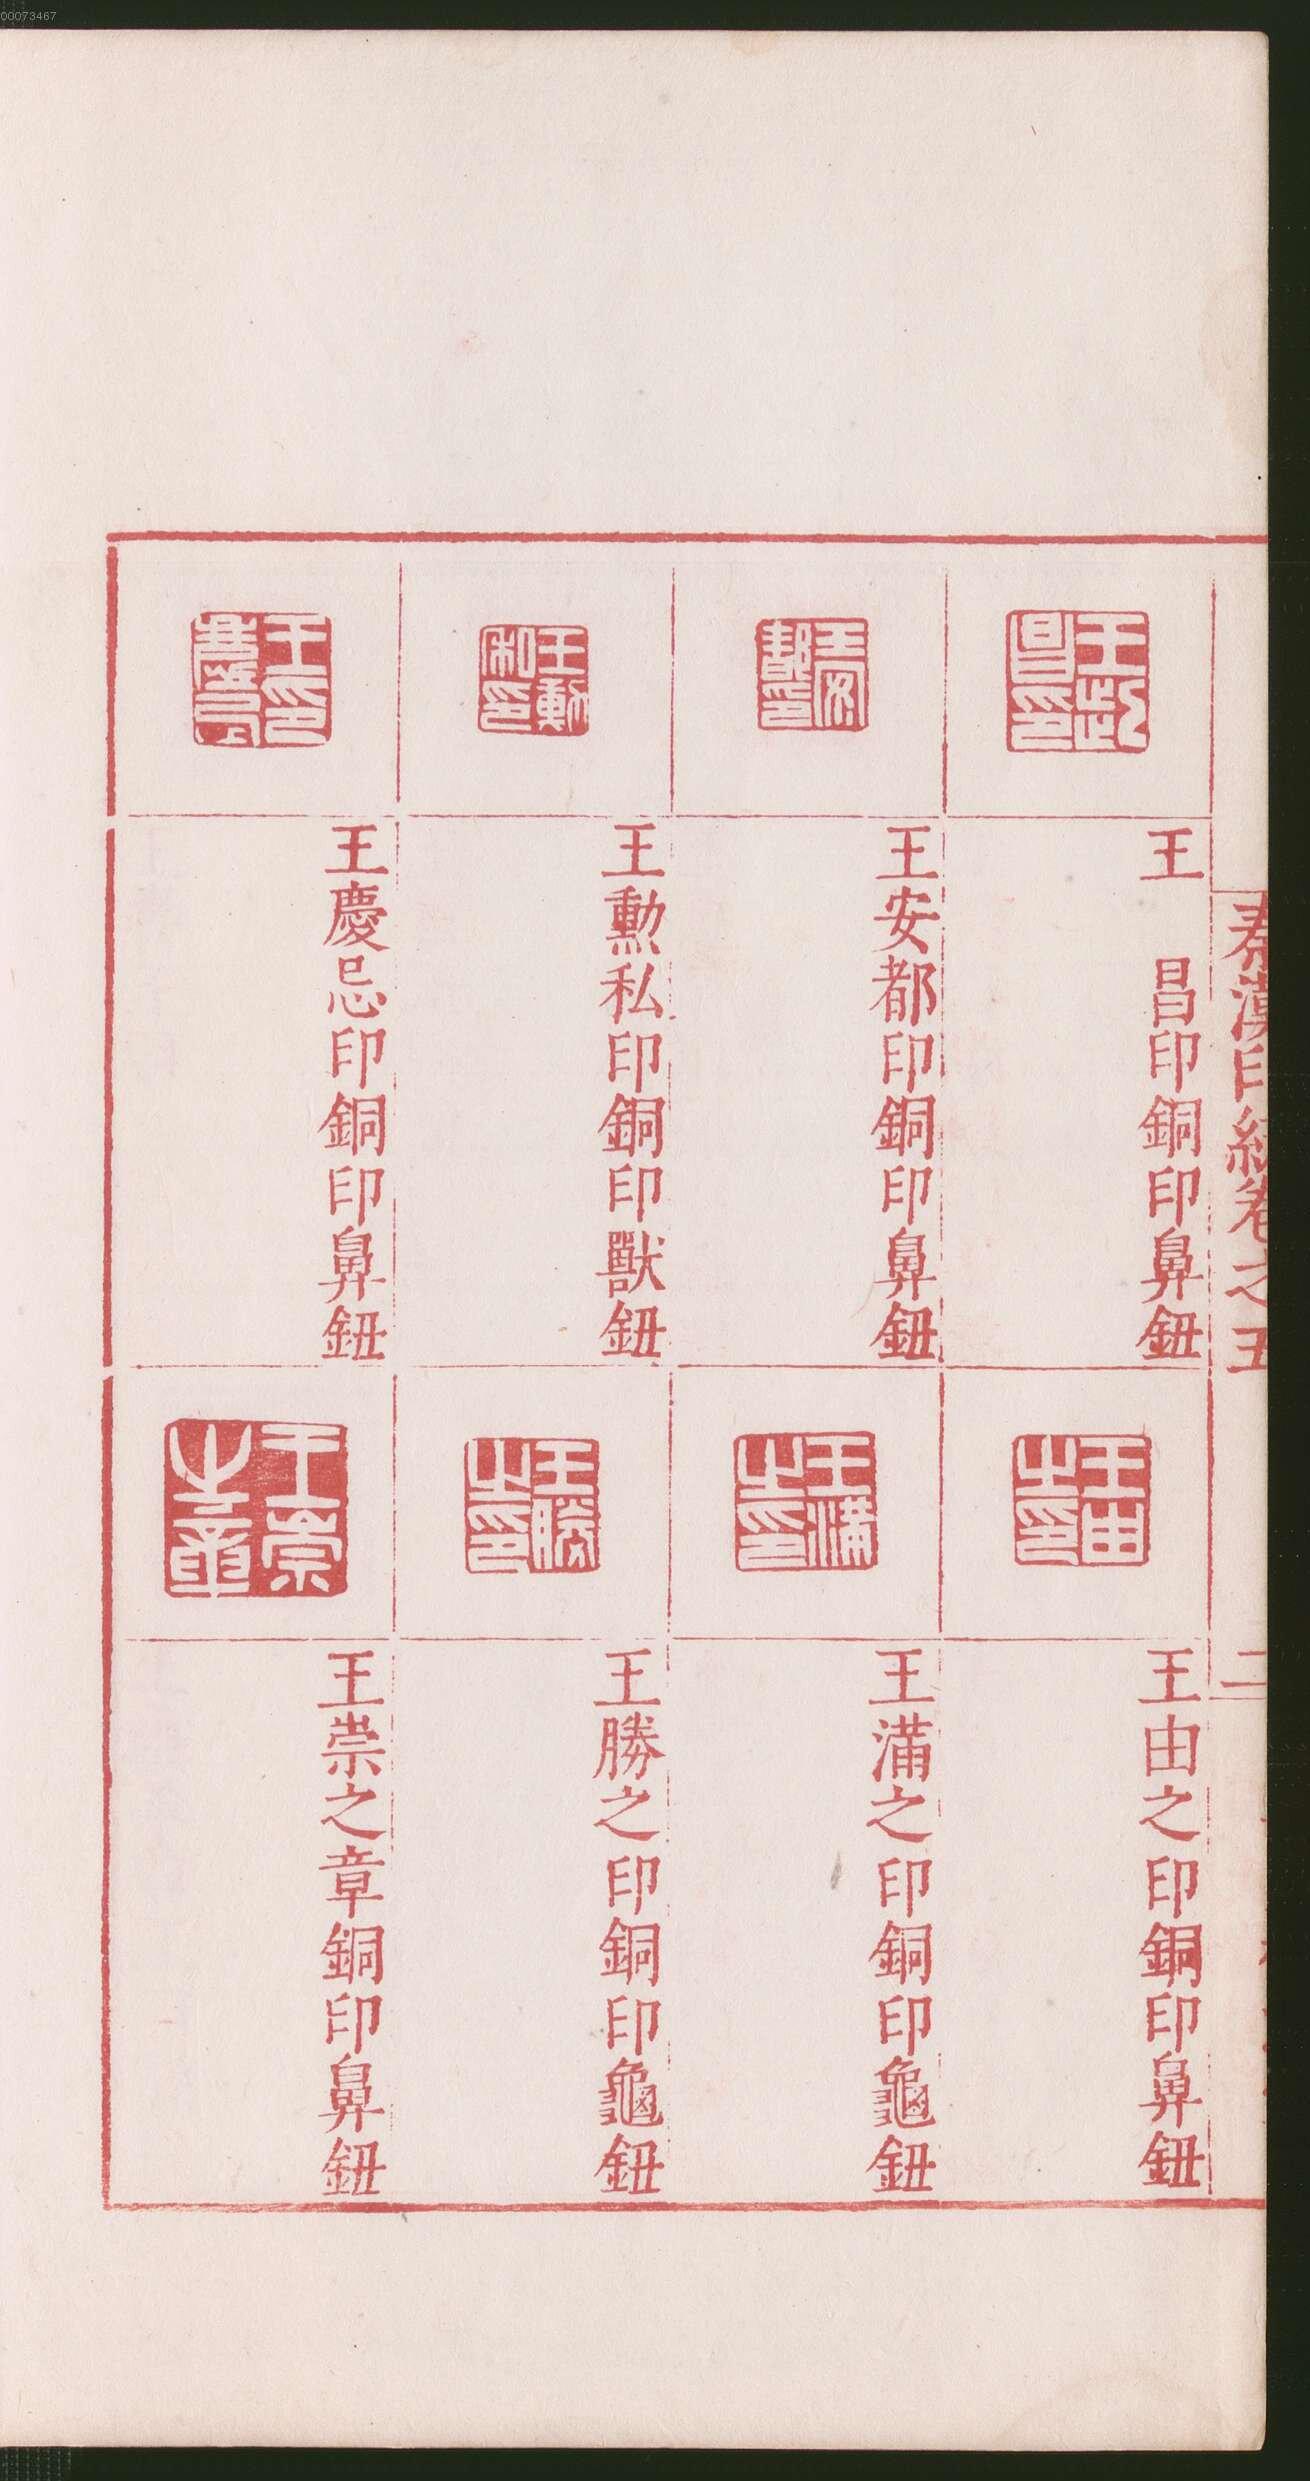 00073467
秦漢印統卷之五
二
王 昌印銅印鼻鈕
王安都印銅印鼻鈕
王勲私印銅印獸鈕
王慶忌印銅印鼻鈕
王由之印銅印鼻鈕
王滿之印銅印龜鈕
王勝之印銅印龜鈕
王崇之章銅印鼻鈕